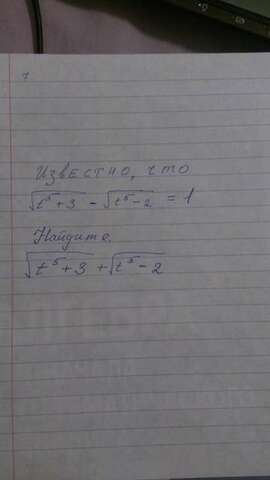 Известно, что
√(t⁵+3) - √(t⁵-2) = 1
Найдите
√(t⁵+3) + √(t⁵-2)